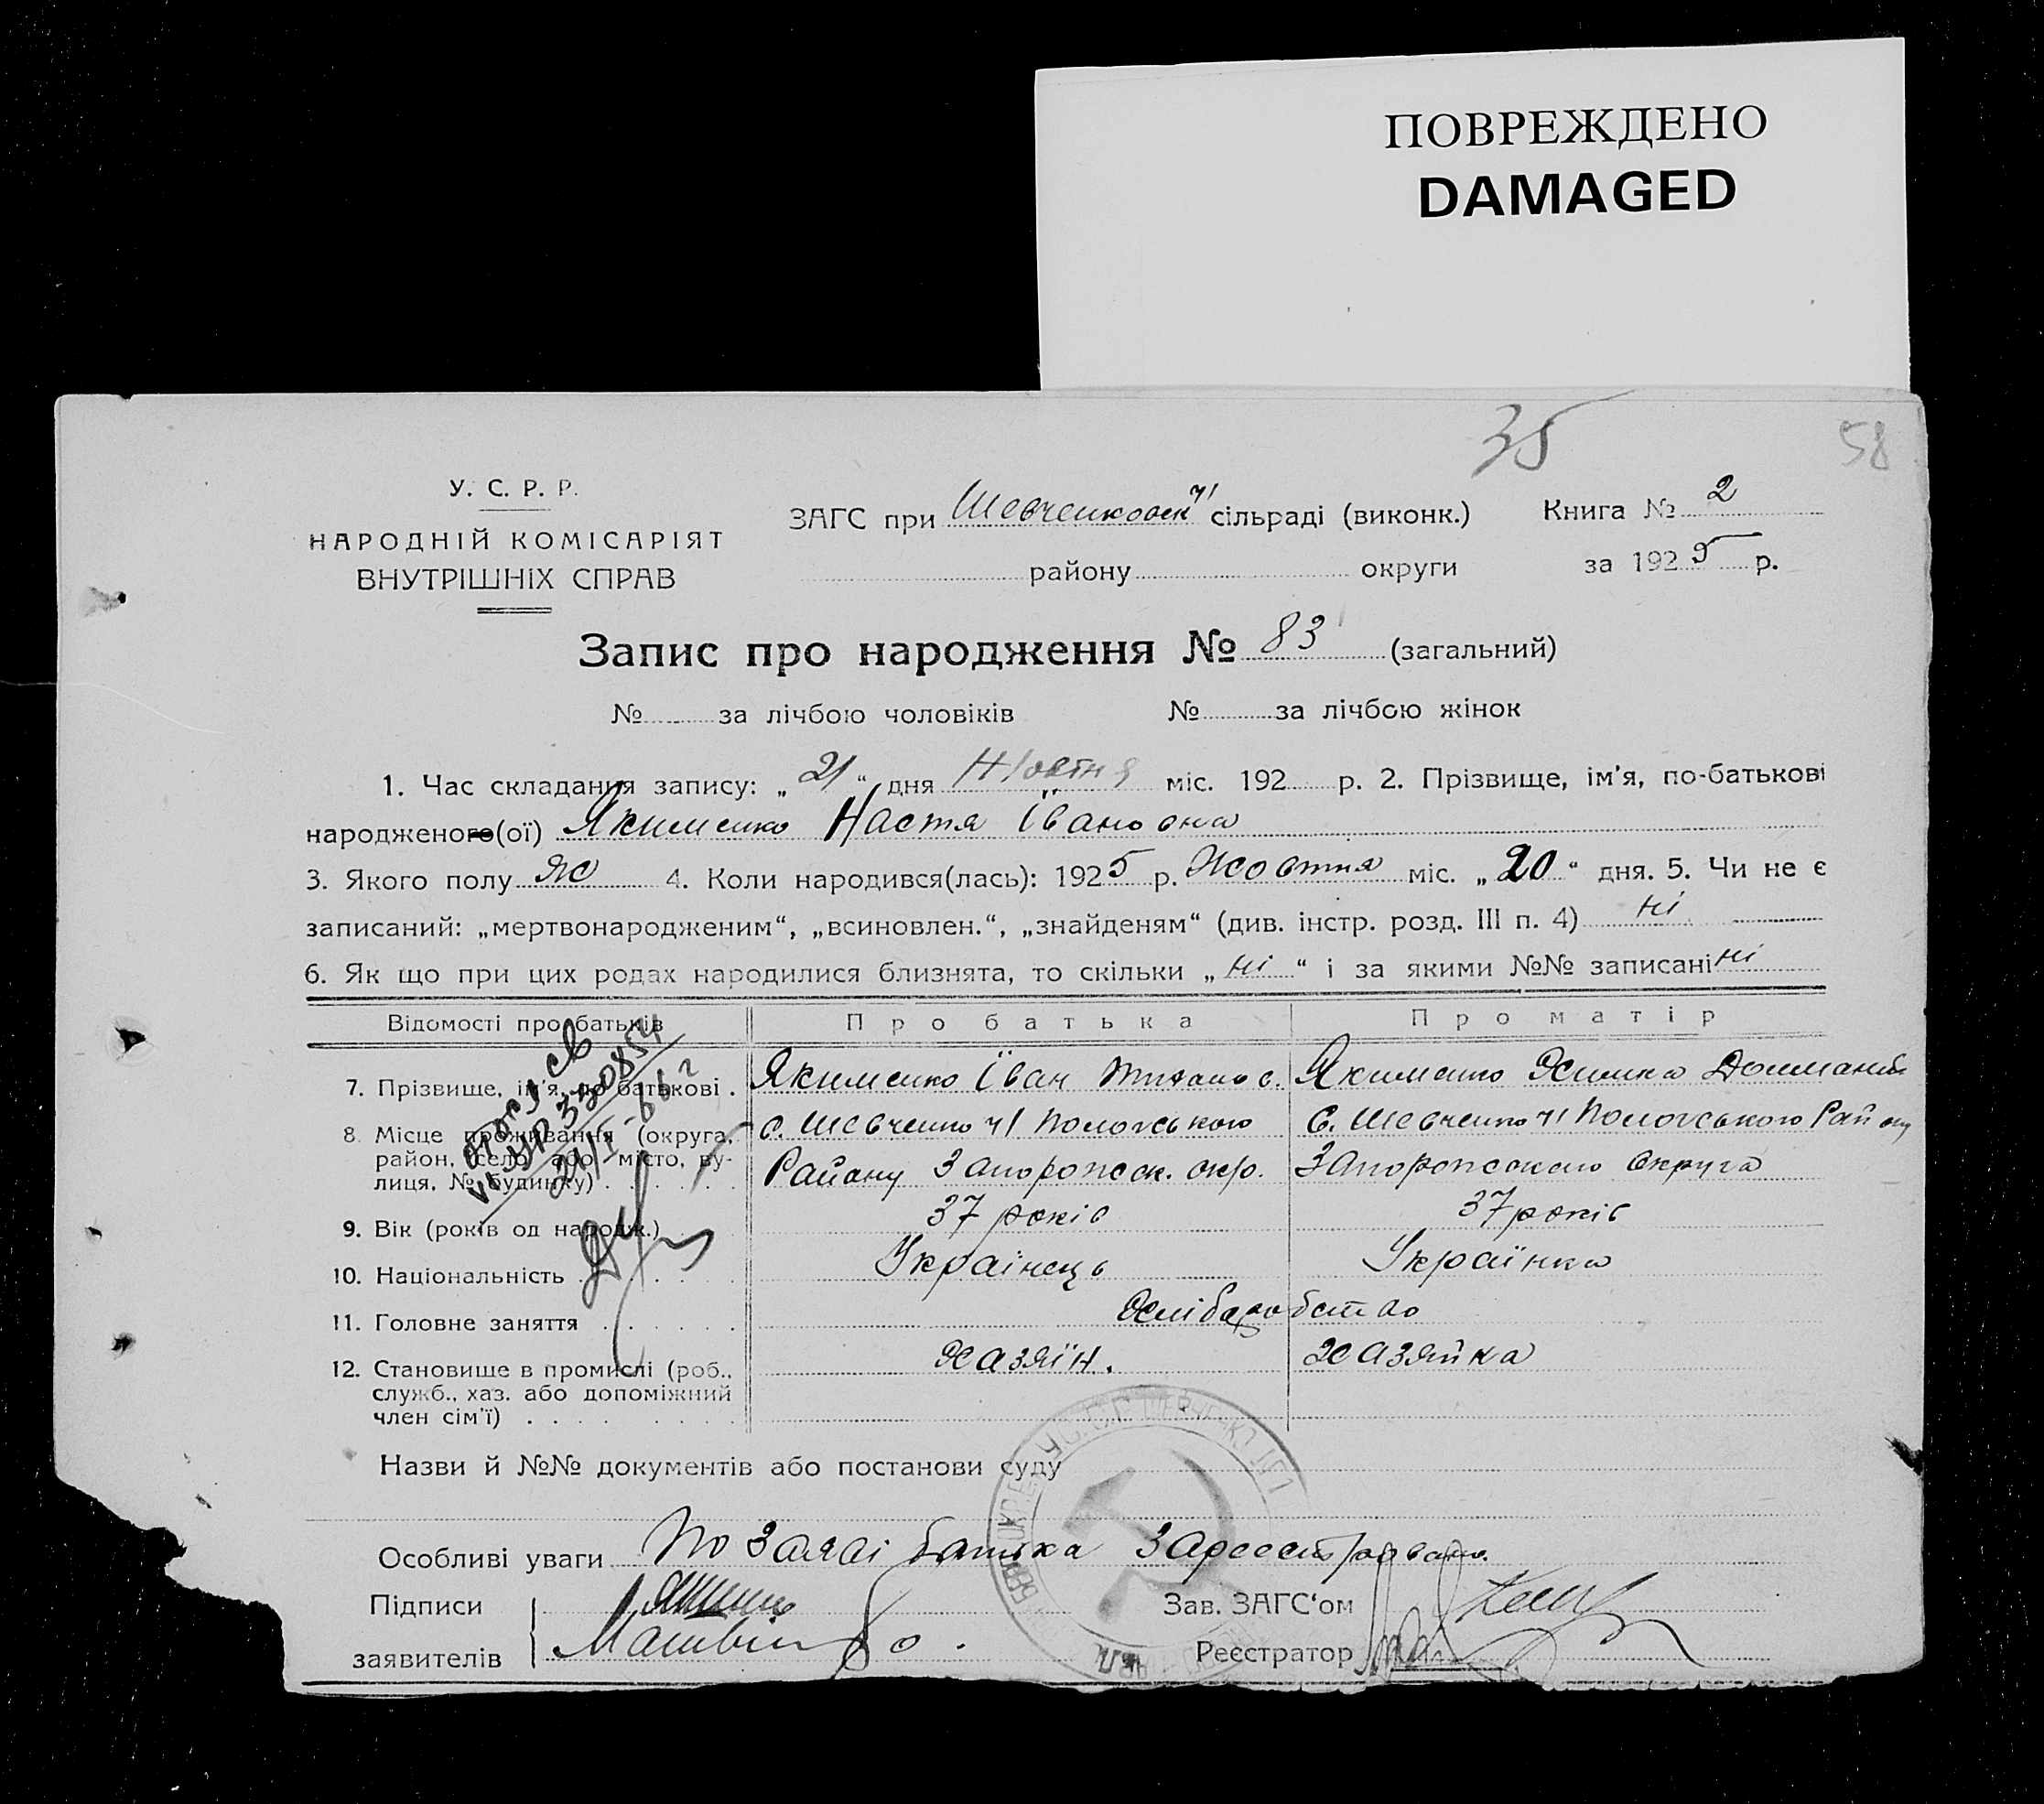 ПОВРЕЖДЕНО
DAMAGED
35
58
У. С. Р. Р.
НАРОДНІЙ КОМІСАРІЯТ
ВНУТРІШНІХ СПРАВ
ЗАГС при Шевченковск сільраді (виконк.) Книга № 2
району округи за 1925 р.
Запис про народження № 83 (загальний)
№ за лічбою чоловіків № за лічбою жінок
1. Час складання запису: „21“ дня Жовтня міс. 192 р. 2. Прізвище, ім'я, по-батькові
народженого(ої) Якименко Настя Івановна
3. Якого полу Ж 4. Коли народився(лась): 1925 р. Жовтня міс. „20“ дня. 5. Чи не є
записаний: „мертвонародженим“, „всиновлен.“, „знайденям“ (див. інстр. розд. III п. 4) ні
6. Як що при цих родах народилися близнята, то скільки „ні“ і за якими №№ записані ні
Відомості про батьків Про батька Про матір
7. Прізвище, ім'я, по батькові . Якименко Іван Якименко
8. Місце проживання (округа, с. Шевченко Пологського С. Шевченко Пологського Району
район, село або місто, ву-
лиця, № будинку) Району Запорожск. окр. Запорожского округа
9. Вік (років од народж.) 37 років 37 років
10. Національність Українець Українка
11. Головне заняття
12. Становище в промислі (роб., Хазяїн. Хазяйка
служб., хаз. або допоміжний
член сім'ї)
Назви й №№ документів або постанови суду
Особливі уваги По заяві батька зареєстровано.
Підписи Зав. ЗАГС'ом
заявителів Реєстратор